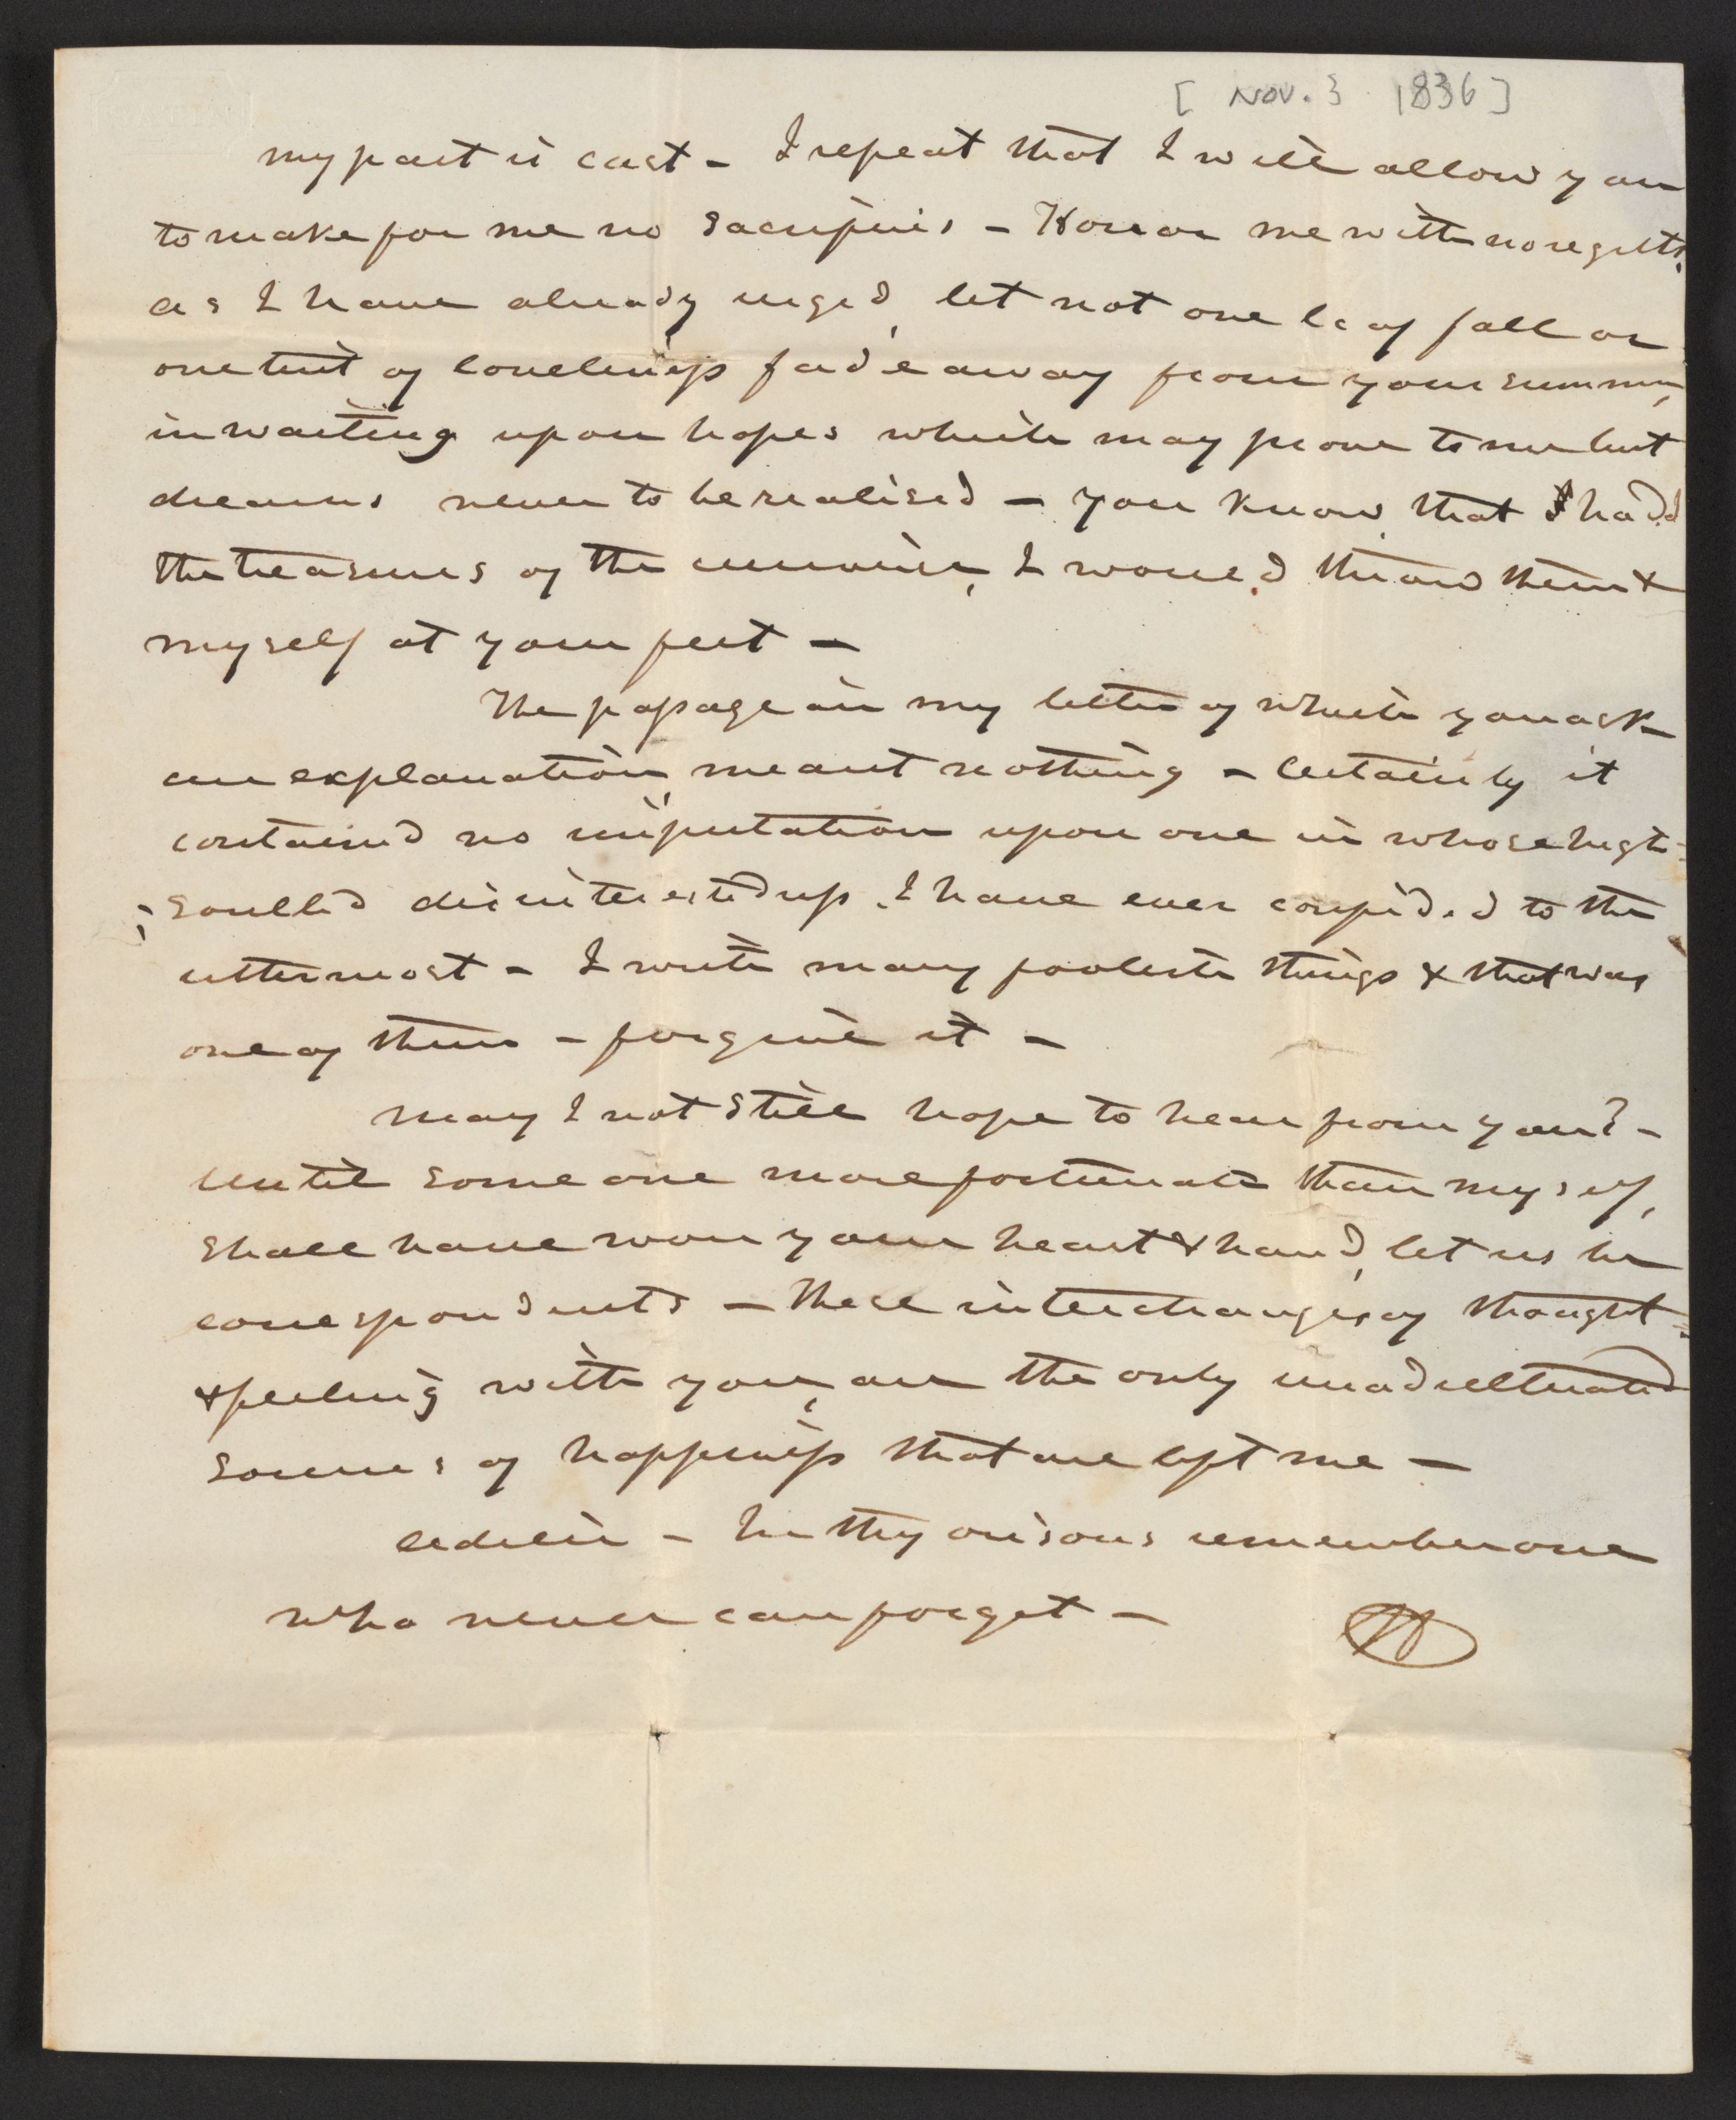 [ Nov. 3 1836 ]
my part is cast - I repeat that I will allow you
to make for me no sacrifices - Honor me with no regrets,
as I have already urged, let not one leaf fall or
one tint of loveliness fade away from your summer,
in waiting upon hopes which may prove to me but
dreams never to be realised - you know, that had I
the treasures of the universe, I would throw them &
myself at your feet -
The passage in my letter of which you ask
an explanation, meant nothing - certainly it
contained no imputation upon one in whose high-
soulled disinterestedness I have ever confided to the
uttermost - I write many foolish things & that was
one of them - forgive it -
May I not still hope to hear from you? -
Until some one more fortunate than myself,
shall have won your heart & hand, let us be
correspondents - These interchanges of thought
& feeling with you, are the only unadulterated
sources of happiness that are left me -
adieu - In thy orisons remember one
who never can forget -